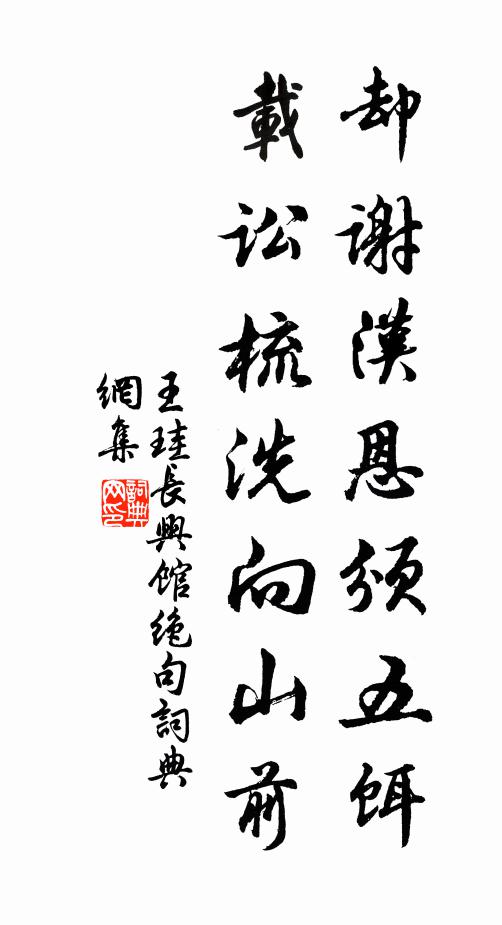 却謝漢恩頒五餌
載訟梳洗向山前
王珪長興館絶句詞典
網集
詞典
网印